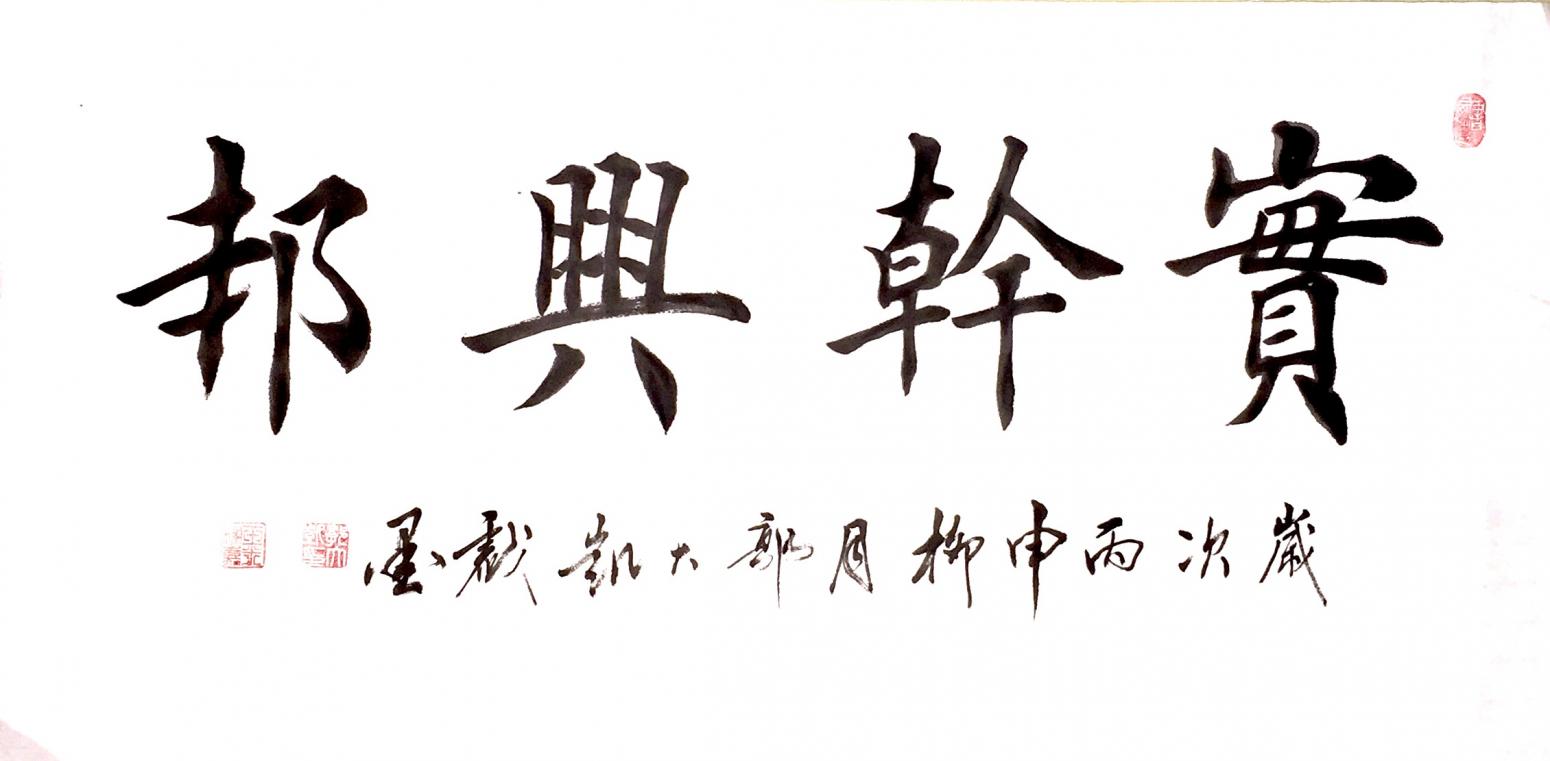 實幹興邦
歲次丙申柳月郭大凱戲墨